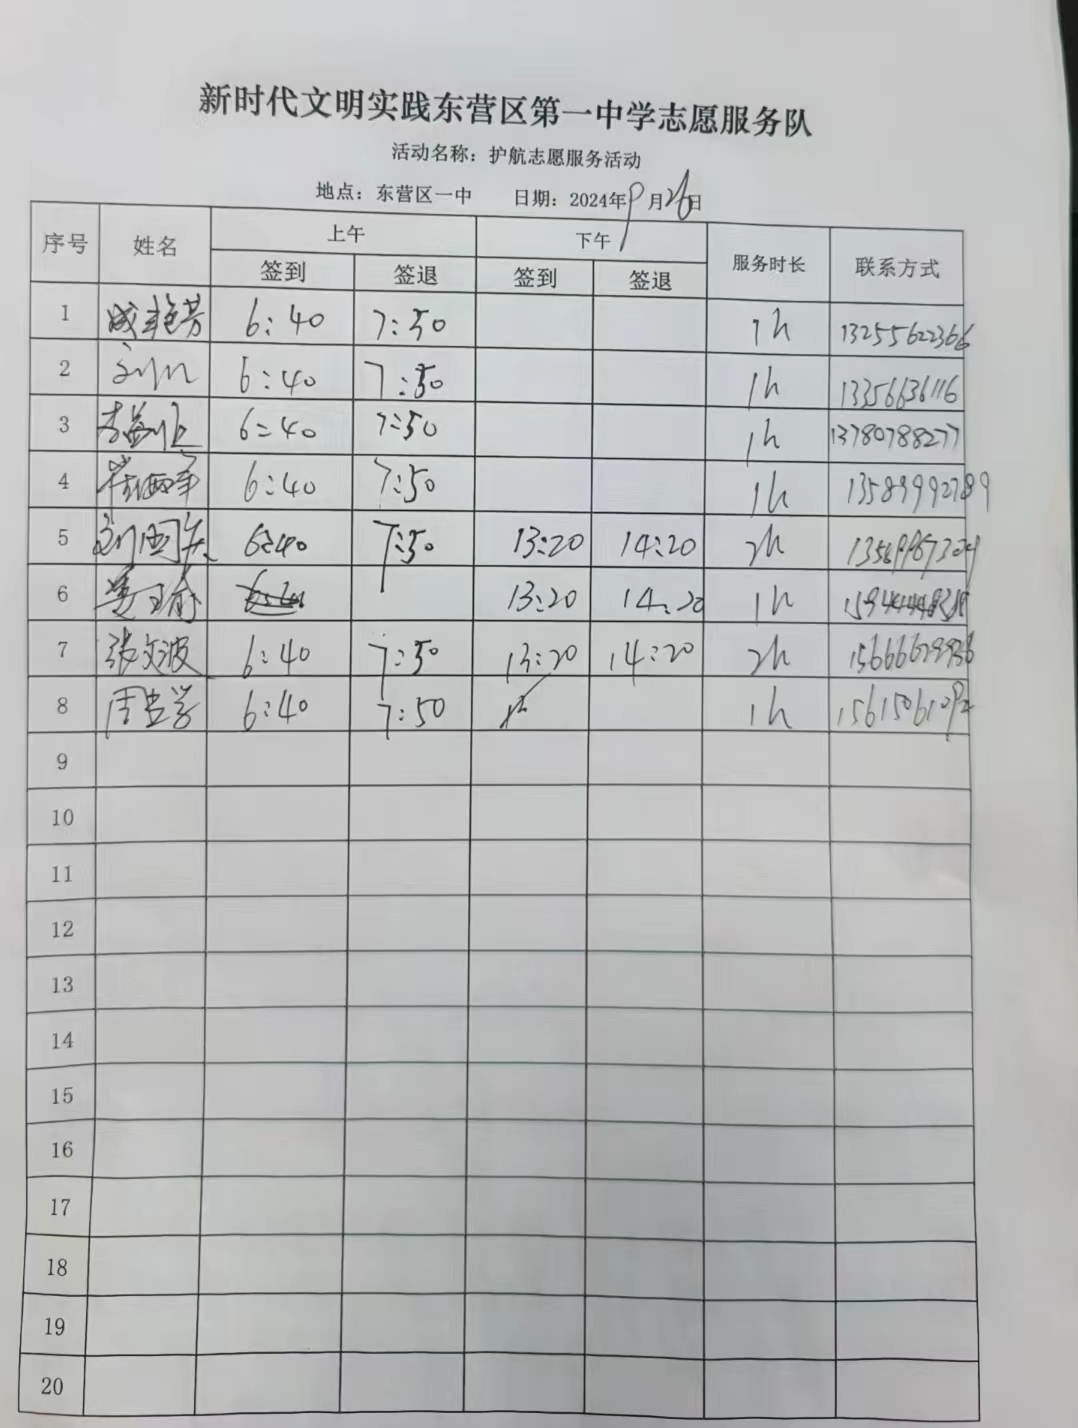 新时代文明实践东营区第一中学志愿服务队
活动名称：护航志愿服务活动
地点：东营区一中 日期：2024年9月26日
序号 姓名 上午 下午 服务时长 联系方式
签到 签退 签到 签退
1 6:40 7:50 1h 13255622366
2 6:40 7:50 1h 13356636116
3 6:40 7:50 1h 13780788277
4 6:40 7:50 1h 13589992789
5 6:40 7:50 13:20 14:20 2h
6 13:20 14:20 1h
7 张文波 6:40 7:50 13:20 14:20 2h
8 6:40 7:50 1h
9
10
11
12
13
14
15
16
17
18
19
20